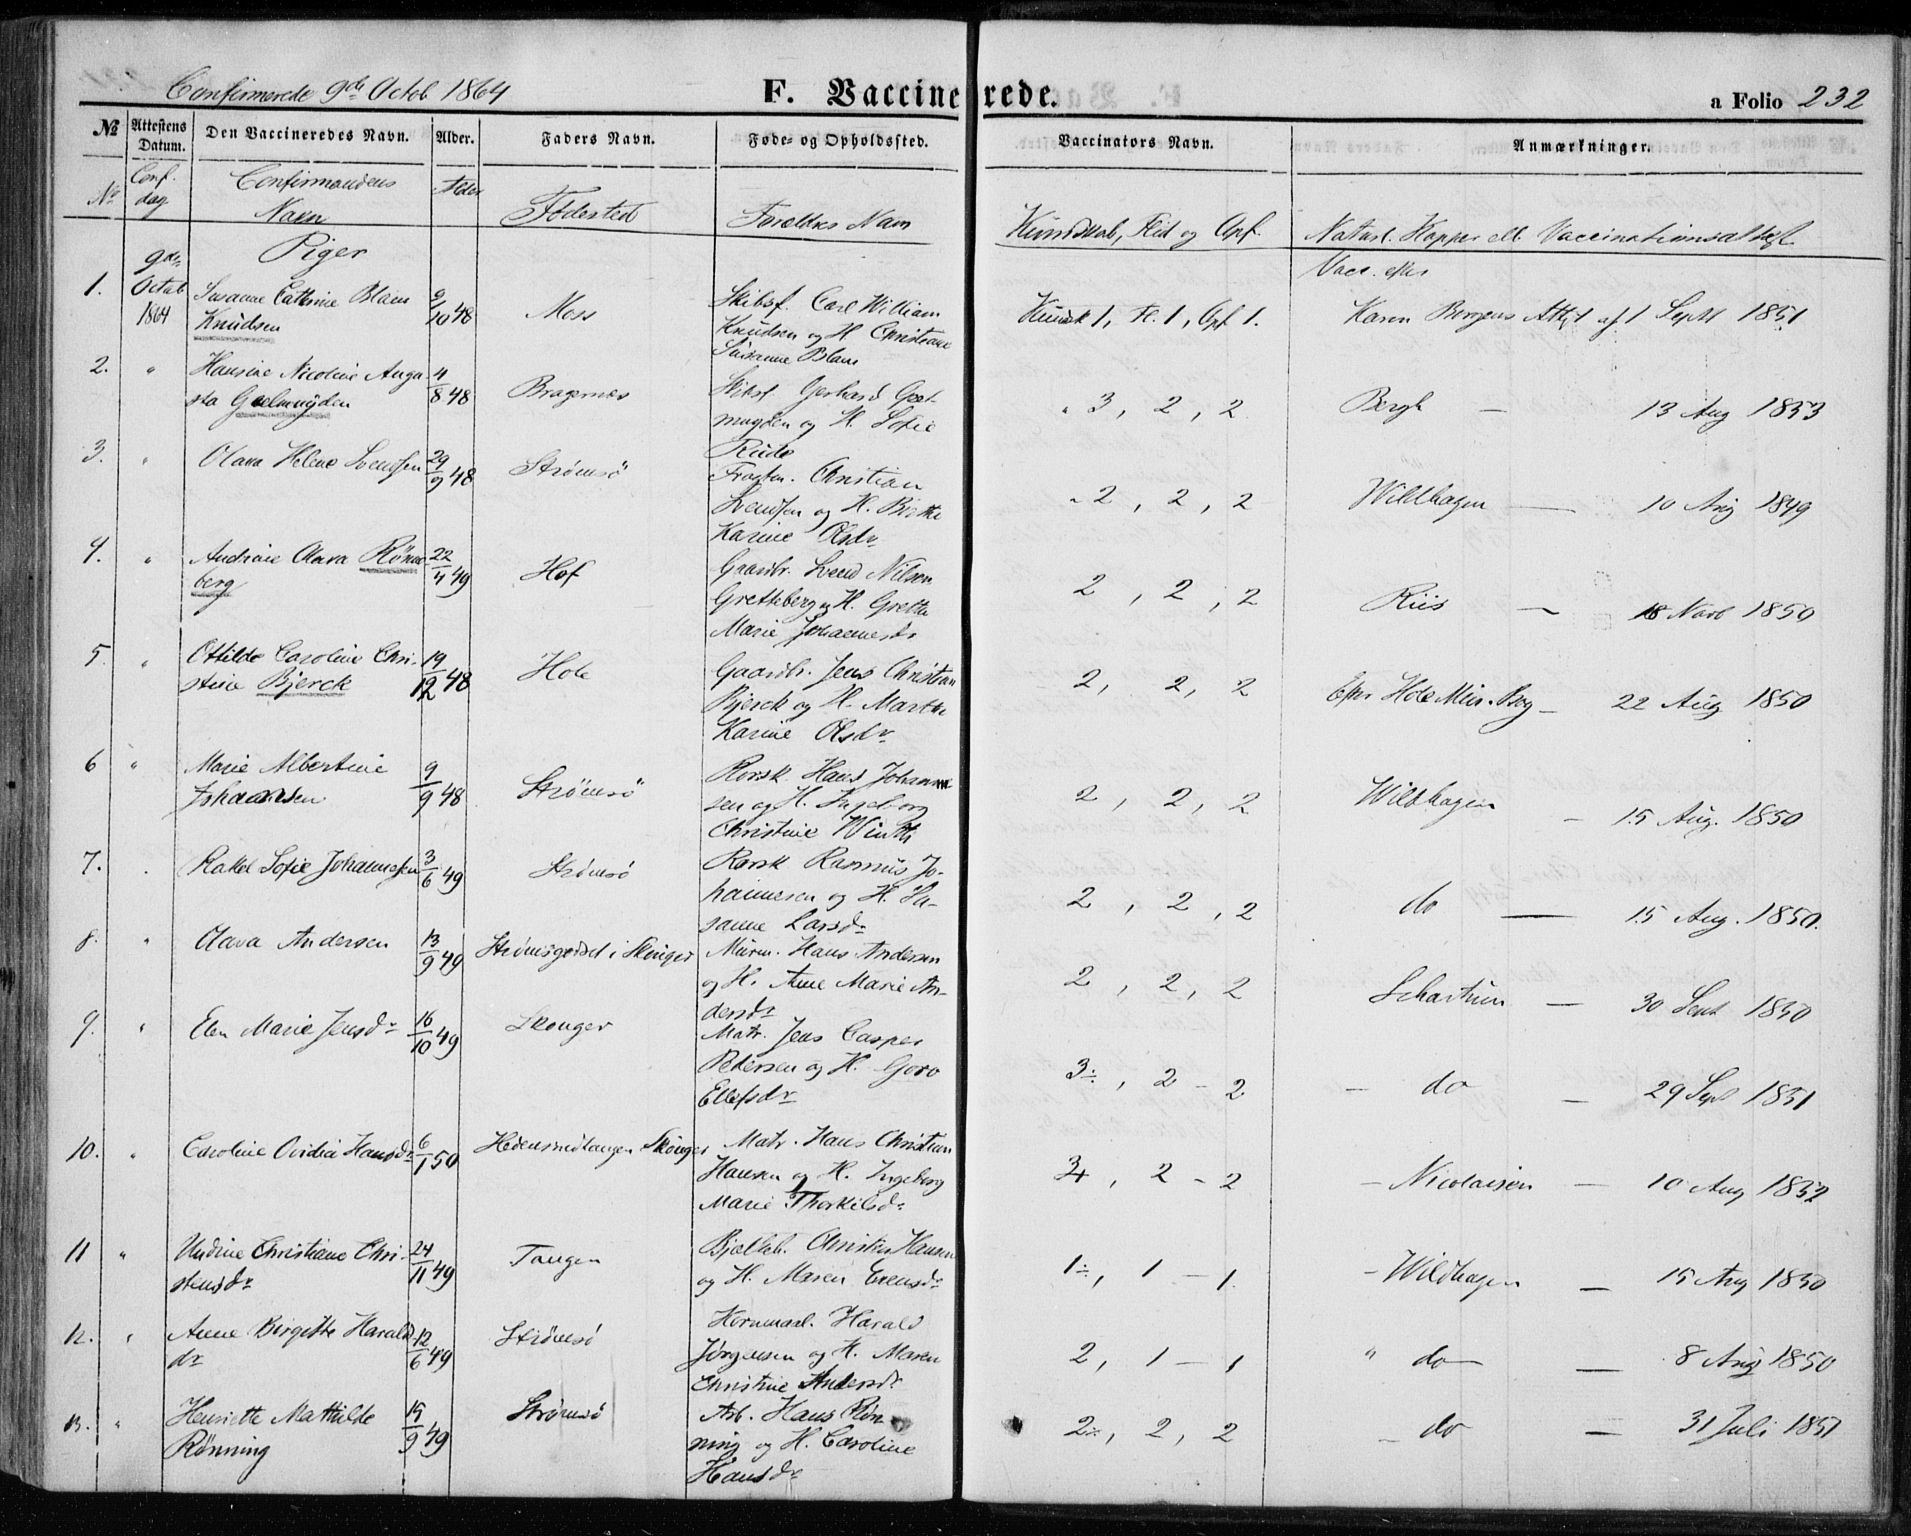 Confirmerede 9de Octob 1864
F. Vaccinerede.
a Folio 232
№ Attestens Datum. Den Vaccineredes Navn. Alder. Faders Navn. Føde- og Opholdssted. Vaccinators Navn. Anmærkninger.
No Conf. dag Confirmandens Navn Alder Fødested Forældres Navn Kundskab, Flid og Opf. Naturl. Kopper ell. Vaccinationsattest
Piger
Vacc. efter
1. 9de Octob 1864 Susanne Cathrine Blam 9/10 48 Moss Skibsf. Carl William Kundsk 1, Fl. 1, Opf 1. Karen Bergens Att. af 1 Septt 1851
Knudsen Knudsen og H. Christiane
Susanne Blam
2. " Hansine Nicoline Augu- 4/8 48 Bragernes Skibsf Gerhard Geel- " 3, 2, 2 Bergh — 13 Aug 1853
sta Geelmuyden muyden og H. Sofie
Rude
3. " Olava Helene Svendsen 29/9 48 Strømsö Christian " 2, 2, 2 Wildhagen — 10 Aug 1849
Svendsen og H. Birthe
Karine Olsdr
4. " Andrine Olava Rönne- 22/4 49 Hof Gaardbr. Svend Nilsen 2, 2, 2 Riis — 18 Novb 1850
berg Gretteberg og H. Grethe
Marie Johannesdr
5. " Ottilde Caroline Chri- 19/12 48 Hole Gaardbr. Jens Christian 2, 2, 2 Efter Hole Min. Bog — 22 Aug 1850
stine Bjerck Bjerck og H. Marthe
Karine Olsdr
6 " Marie Albertine 9/9 48 Strömsö Rorsk. Hans Johann- 2, 2, 2 Wildhagen — 15 Aug. 1850
Johannsen sen og H. Ingeborg
Christine Winth
7. " Rakel Sofie Johannessen 3/6 49 Strömsö Rorsk Rasmus Jo- 2, 2, 2 do — 15 Aug. 1850.
hannesen og H. Su-
sanne Larsdr
8. " Olava Andersen 13/9 49 Strömsgodset i Skouger Murm. Hans Andersen 2, 2, 2 Schartum — 30 Sept 1850
og H. Anne Marie An-
dersdr
9. " Elen Marie Jensdr 16/10 49 Skouger Matr. Jens Casper 3÷, 2 - 2 — do — 29 Sept 1851
Pedersen og H. Goro
Ellefsdr
10. " Caroline Ovidia Hansdr 6/1 50 Skouger Matr. Hans Christian 3+, 2 - 2 — Nicolaisen — 10 Aug 1852
Hansen og H. Ingeborg
Marie Thorkilsdr
11 " Undine Christiane Chri- 24/11 49 Tangen Christen Hansen 1÷, 1 - 1. — Wildhagen — 15 Aug 1850
stensdr og H. Maren Evensdr
12. " Anne Birgitte Harald 12/6 49 Strömsö Kornmaal. Harald 2, 1 - 1 " do — 8 Aug 1850
dr Jörgensen og H. Maren
Christine Andersdr
13. " Henriette Mathilde 15/9 49 Strömsö Arb. Hans Rön- 2÷, 2, 2 — do — 31 Juli 1851
Rønning ning og H. Caroline
Hansdr